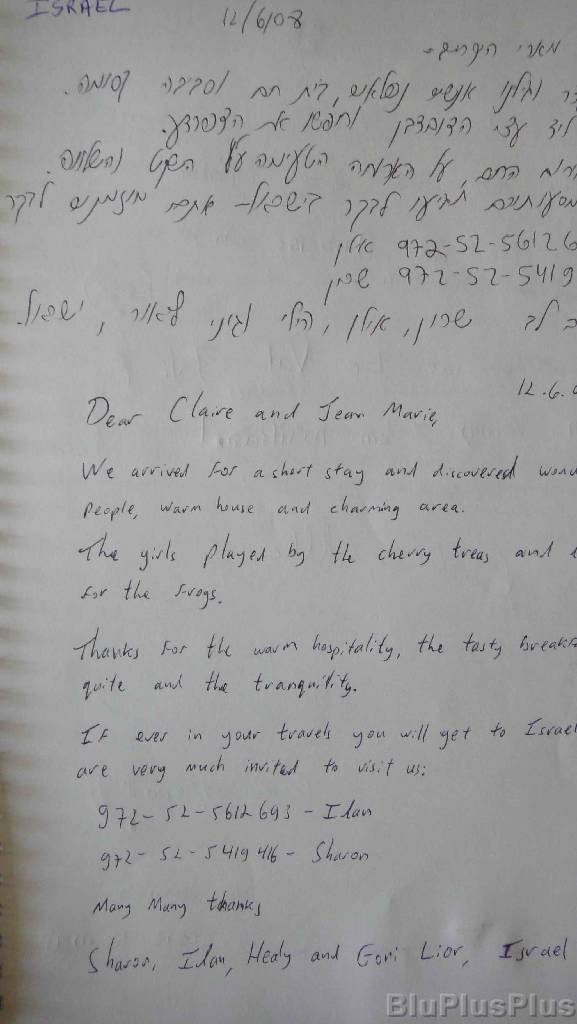 ISRAEL
12/6/08
מארי היקרים-
וגילנו אנשים נפלאים, בית חם וסביבה קסומה.
ליד עצי הדובדבן וחפשו את הצפרדע.
החם, על הארוחה הטעימה על השקט והשלווה.
תגיעו לבקר בישראל- אתם מוזמנים לבקר
972-52-56126 אילן
972-52-5419 שרון
לב שרון, אילן, הילי וגיני ליאור, ישראל.
12.6.
Dear Claire and Jean Marie,
We arrived for a short stay and discovered
People, warm house and charming area.
The girls played by the cherry treas and
for the frogs.
Thanks for the warm hospitality, the tasty
quite and the tranquility.
If ever in your travels you will get to Israel
are very much invited to visit us:
972-52-5612693 - Ilan
972-52-5419416 - Sharon
Many Many thanks
Sharon, Ilan, Healy and Lior, Israel
BluPlusPlus